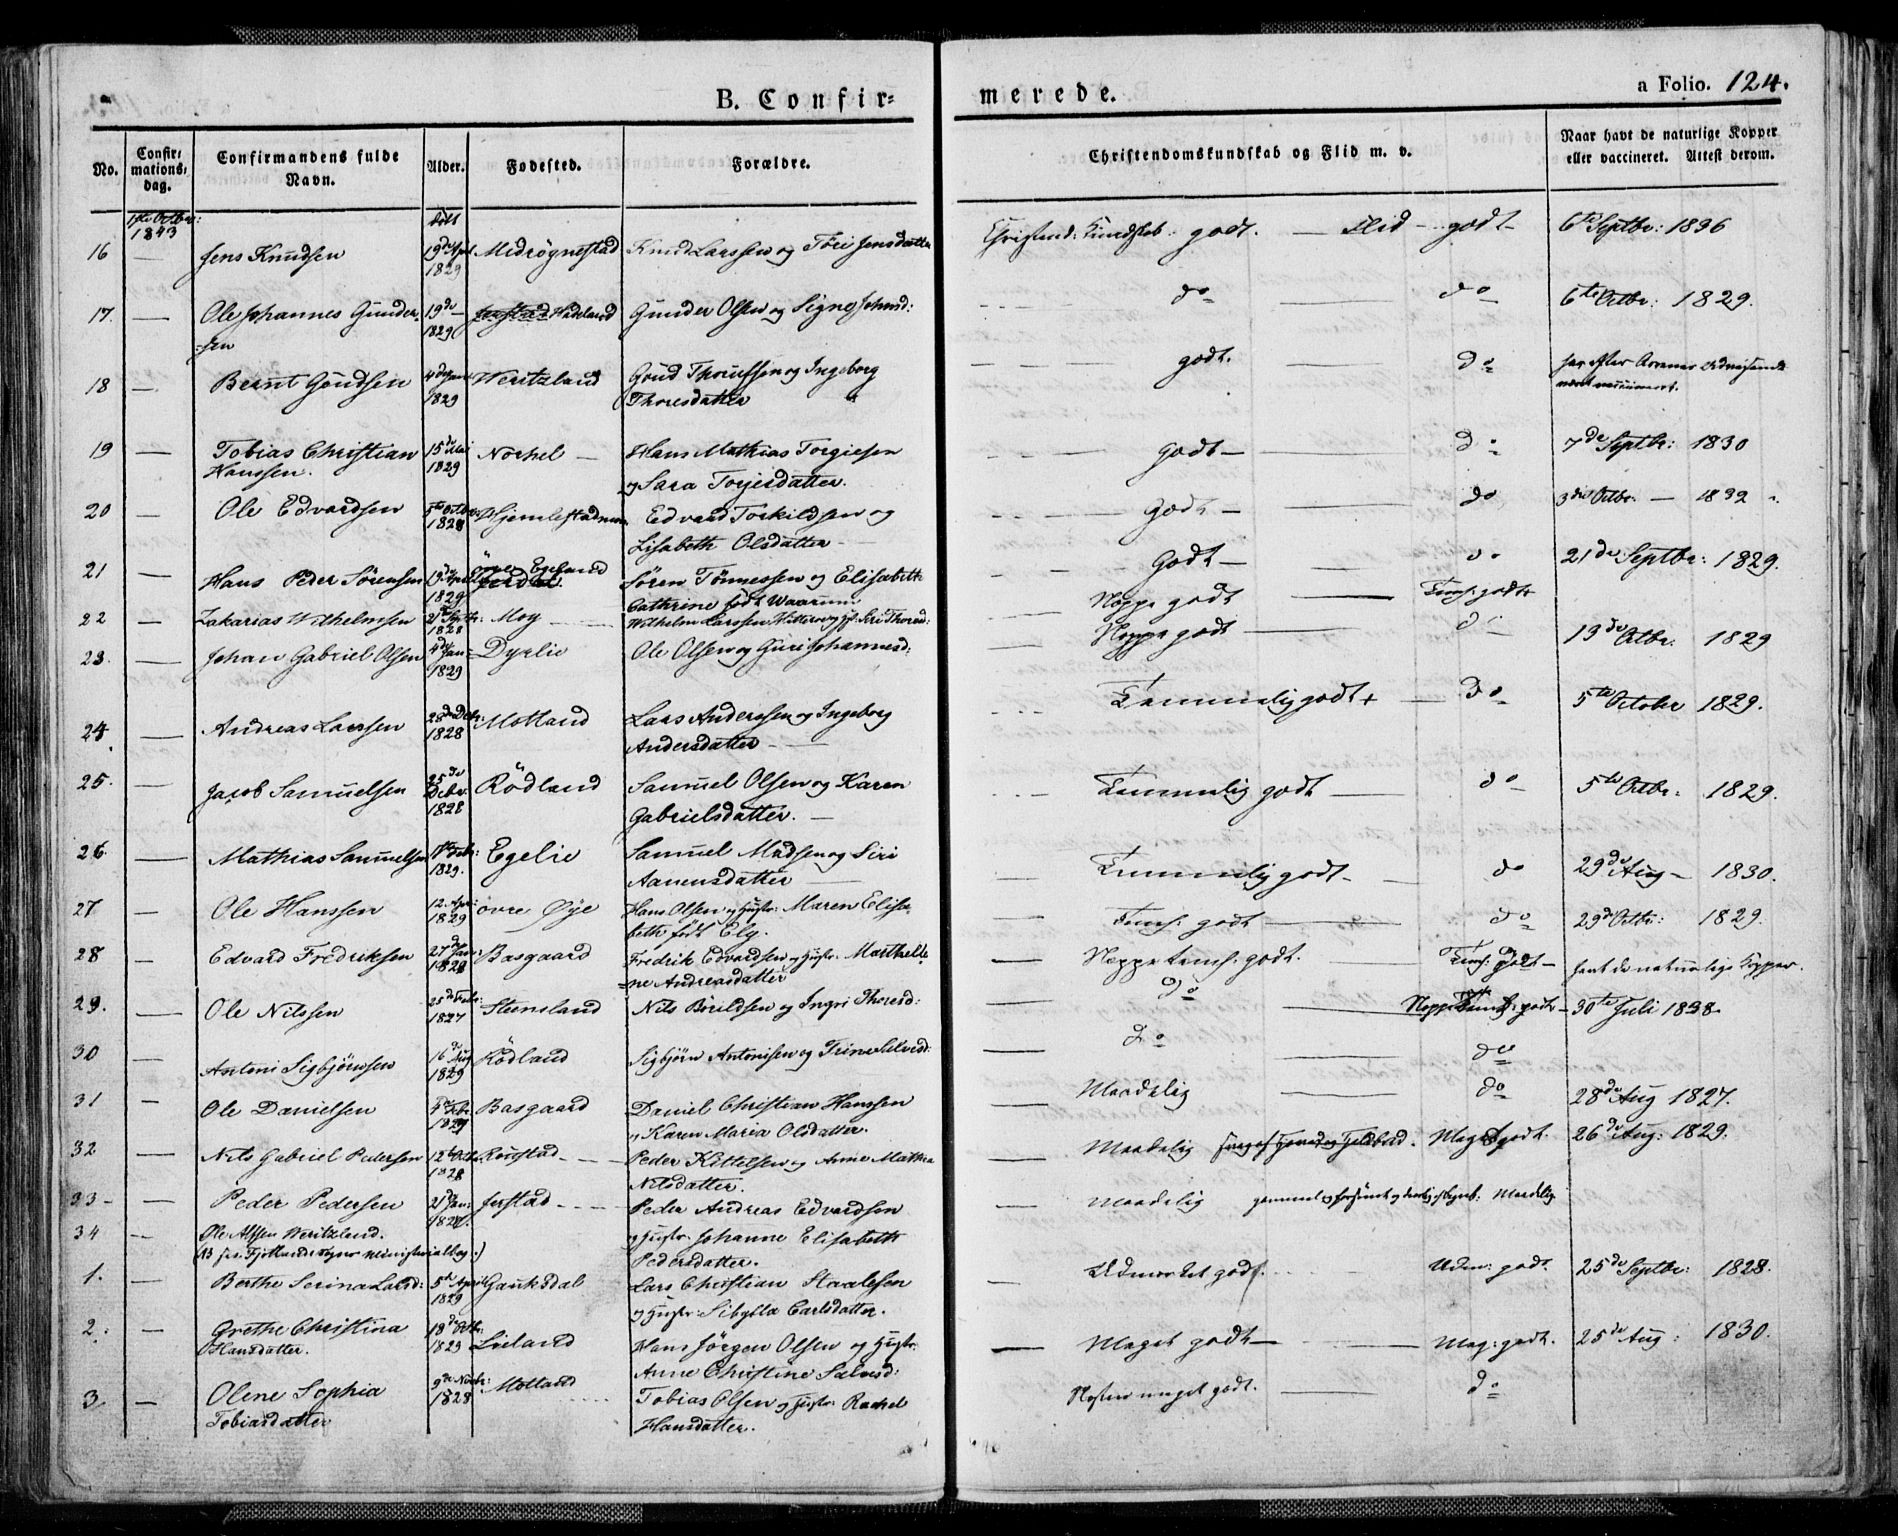 B. Confir=
merede.
a Folio. 124.
No.
Confir=
mations=
dag.
Confirmandens fulde
Navn.
Alder.
Fødested.
Forældre.
Christendomskundskab og Flid m. v.
Naar havt de naturlige Kopper
eller vaccineret. Attest derom.
1ste Octbr:
1843
født
16 — Jens Knudsen 19de April 1829 Midrøgnestad Knud Larssen og Tori Jensdatter Christend: Kundskab: godt. — Flid — godt — 6te Septbr: 1836
17. — Ole Johannes Gunder=
sen 19de 1829 Hadeland Gunder Olsen og Signe Johnsd: do do 6te Octbr: 1829.
18 — Bernt Gundsen 4de 1829 Weritzland Gund og Ingeborg
Thoresdatter godt. do har efter
været vaccineret.
19 — Tobias Christian
Hanssen. 15de Mai 1829 Norhel — Hans Mathias Torgiesen
og Sara Torjesdatter. Godt — do 7de Septbr: 1830
20 — Ole Edvardsen 5te Octbr 1828 Edvard Torkildsen og
Lisabeth Olsdatter — Godt — do 3die Octbr. — 1832
21 — Hans Peder Sørensen 19de April 1829 Egeland Søren Tønnessen og Elisabeth
Cathrine født Godt — do 21de Septbr: 1829.
22 — Zakarias Wilhelmsen 21de Septbr: 1828 Moy — Wilhelm Larssen og Siri Thoresd: Noppe godt Tems: godt
23. — Johan Gabriel Olsen 4de Jan= 1829 Dyrlie Ole Olsen og Guri Johannesd: Noppe godt do 13de Octbr. 1829
24. — Andreas Larssen 28de Debr: 1828 Motland Lars Anderssen og Ingeborg
Andersdatter — Temmelig godt + — do 5te October 1829.
25. — Jacob Samuelsen 25de Debr. 1828 Rødland Samuel Olsen og Karen
Gabrielsdatter. — Temmelig godt — do 5te Octbr. 1829.
26. — Mathias Samuelsen Febr: 1829. Egelie Samuel Madsen og Siri
Aanensdatter — Temmelig godt — do 29de Aug — 1830.
27 — Ole Hanssen 12. Apri: 1829 øvre Øye Hans Olsen og Hustr: Maren Elisa=
beth født Ely. Tems: godt — do 29de Octbr: 1829.
28 — Edvard Fredriksen 27de Jan: 1828 Basgaard Fredrik Edvardsen og Hustr: Marthelle
=ne Andreasdatter Noppe tems: godt. Tems: godt — havt de naturlige Kopper.
29. — Ole Nilssen 25de Febr: 1827 Steensland Nils og Ingri Thoresd: do Noppe godt — 30te Juli 1838
30 — Antoni Sigbjørnsen 16de Aug 1829 Rødland Sigbjørn Antonisen og Trine do do
31 — Ole Danielsen Febr. 1829 Basgaard Daniel Christian Hanssen
og Karen Maria Olsdatter. Maadelig do 28de Aug 1827.
32 — Nils Gabriel Pedersen 12te Octbr. 1828 Røistad — Peder Kittelsen og Anne Mathea
Nilsdatter. Maadelig Meget godt. 26de Aug: 1829.
33 — Peder Pedersen 21de Jan: Jerstad — Peder Andreas Edvardsen
og Hustr: Johanne Elisabeth
Pedersdatter. Maadelig gammel og forsømt og Maadelig
34 — Ole Weritzland.
(13 Fjotlands Sogns ministerialbog.)
1. — Berthe Serina Larsd: 5te April 1829 Gauksdal Lars Christian Staalesen
og Hustr: Sibylla Carlsdatter. Udmærket godt. Udm: godt 25de Septbr: 1828.
2. — Grethe Christina
Hansdatter. 18de Octbr: 1829 Lieland Hans Jørgen Olsen og Hustr:
Anne Christine Salvesd: Meget godt — Meg: godt. 25de Aug: 1830.
3. — Olene Sophia
Tobiasdatter 9de Novbr: 1828 Motland Tobias Olsen og Hustr: Rachel
Hansdatter. Næsten meget godt. do